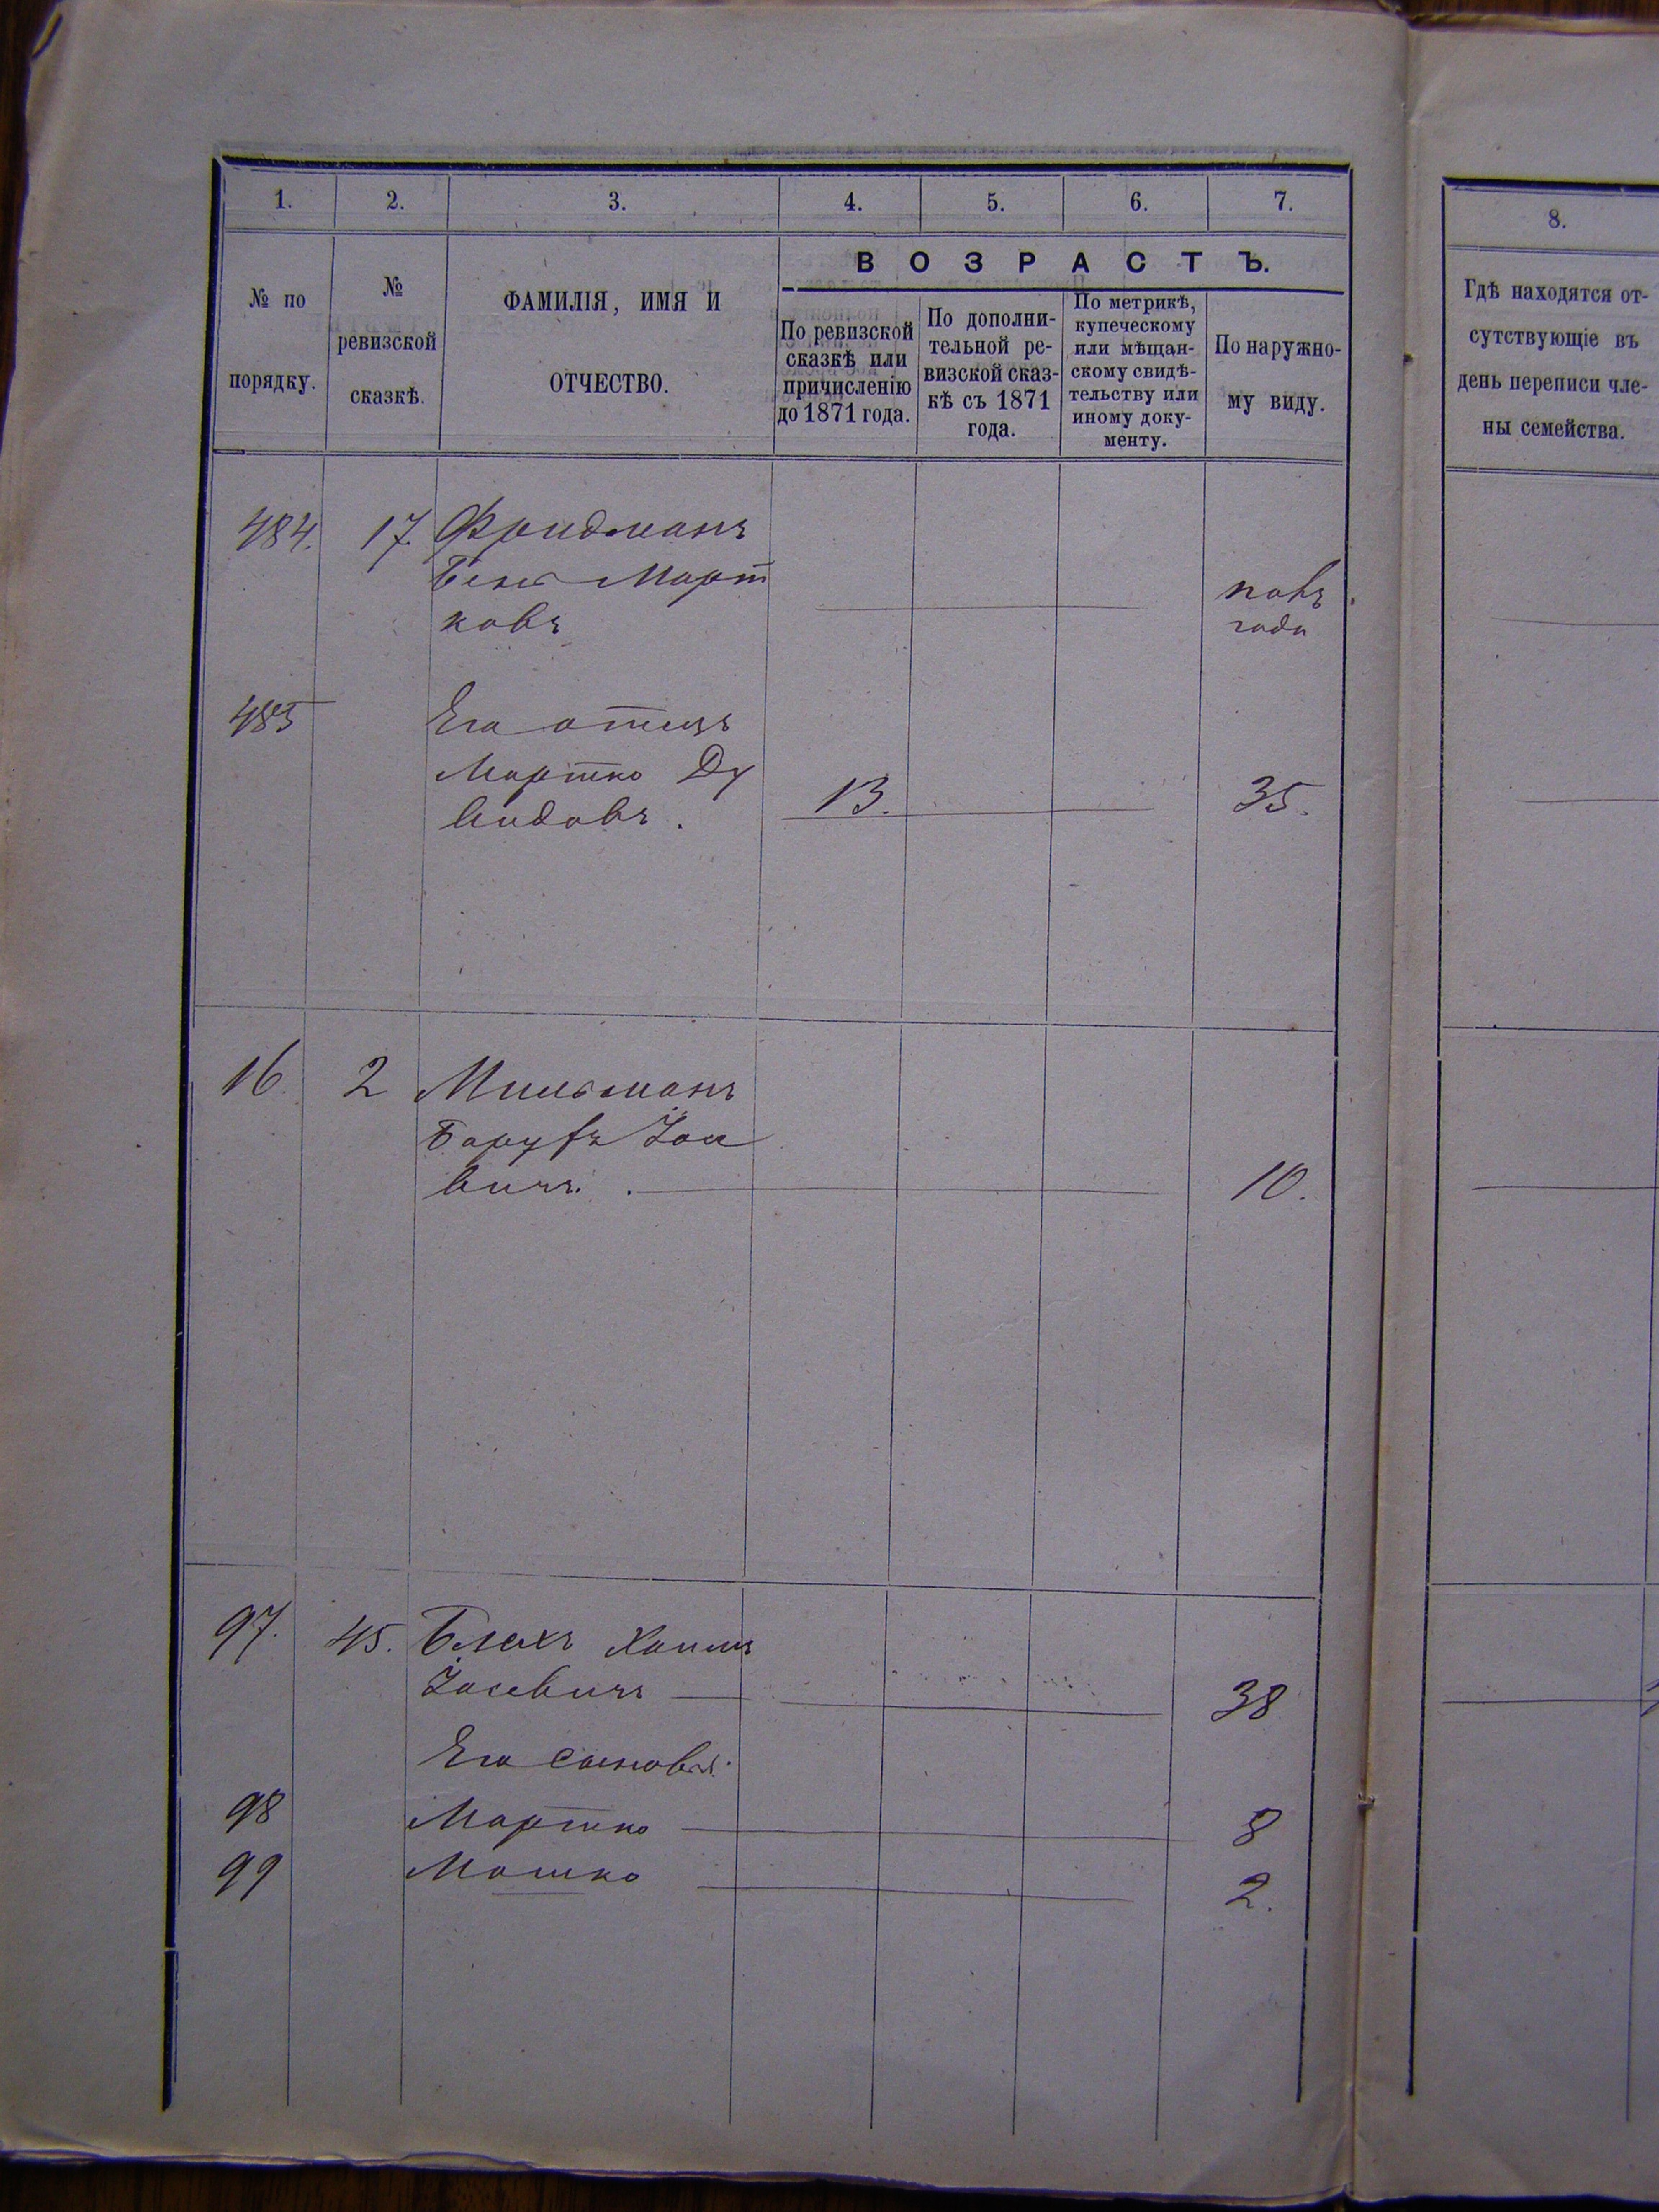 1. 2. 3. 4. 5. 6. 7.
№ по
порядку.
№
ревизской
сказкѣ.
ФАМИЛІЯ, ИМЯ И
ОТЧЕСТВО.
ВОЗРАСТЪ.
По ревизской
сказкѣ или
причисленію
до 1871 года.
По дополни-
тельной ре-
визской сказ-
кѣ съ 1871
года.
По метрикѣ,
купеческому
или мѣщан-
скому свидѣ-
тельству или
иному доку-
менту.
По наружно-
му виду.
484. 17. Фридманъ
Март
ковъ
полъ
года
485 Его отецъ
Мартко Ду
видовъ. 13. 35.
16. 2 Мильманъ
Барухъ Іос
вичъ. 10.
97. 45. Блехъ Хаимъ
Іосевичъ 38
Его сыновья:
98 Мартко 8
99 Мошко 2.
8.
Гдѣ находятся от-
сутствующіе въ
день переписи чле-
ны семейства.